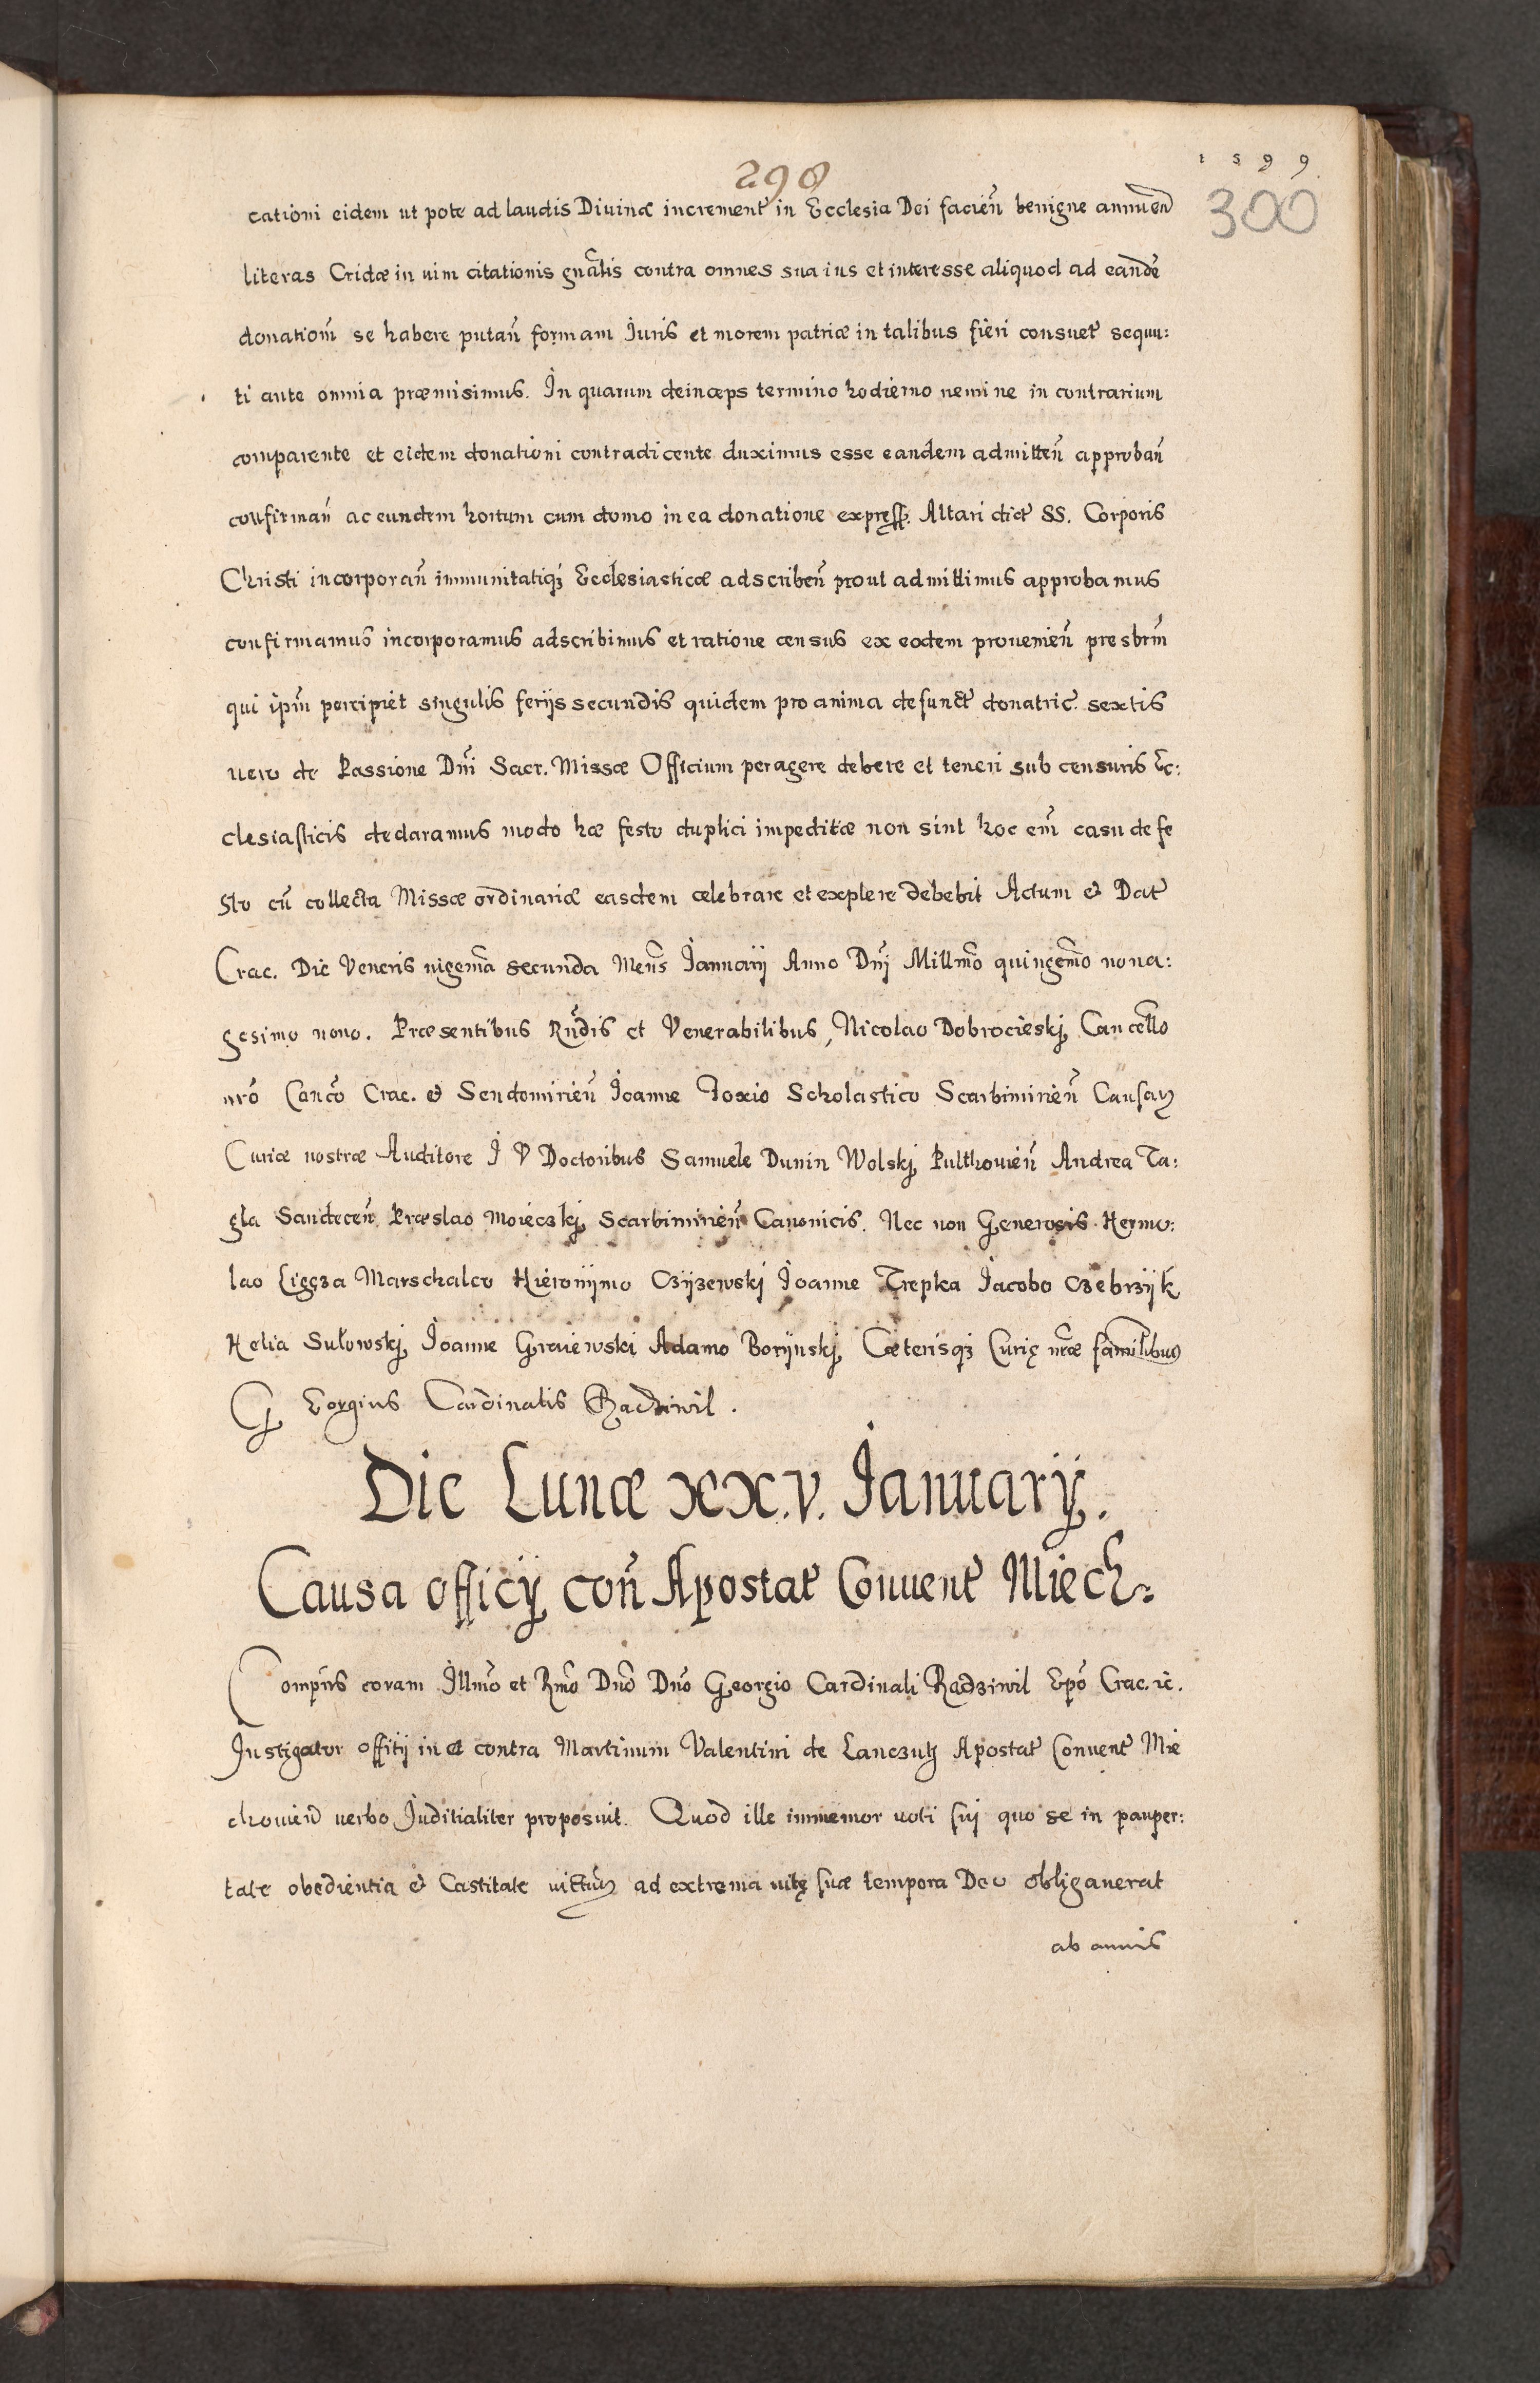 298
1599
300
cationi eidem ut pote ad laudis Diuinæ increment̃ in Ecclesia Dei facien̄ benigne annuen̄
literas Cridæ in uim citationis gn̄alis contra omnes sua ius et interesse aliquod ad eandē
donationm̄ se habere putan̄ formam Iuris et morem patriæ in talibus fieri consuet̃ sequu:
ti ante omnia præmisimus. In quarum deinceps termino hodierno nemine in contrarium
comparente et eidem donationi contradicente duximus esse eandem admitten̄ approban̄
confirman̄ ac eundem hortum cum domo in ea donatione expreſſ. Altari dict̃ SS. Corporis
Christi incorporan̄ immunitatiqꝫ Ecclesiasticæ adscriben̄ prout admittimus approbamus
confirmamus incorporamus adscribimus et ratione census ex eodem prouenien̄ presbrm̄
qui ipm̄ percipiet singulis ferijs secundis quidem pro anima defunct̃ donatric̃ sextis
uero de Passione Dn̄i Sacr. Missæ Officium peragere debere et teneri sub censuris Ec:
clesiaſticis declaramus modo hæ festo duplici impeditæ non sint hoc em̄ casu de fe
sto cū collecta Missæ ordinariæ easdem celebrare et explere debebit Actum & Dat̃
Crac. Die Veneris uigesm̄a secunda Mens̄ Ianuarij Anno Dn̄j Millm̄o quingem̄o nona:
gesimo nono. Præsentibus Rn̄dis et Venerabilibus, Nicolao Dobrocieskj Cancello
nrō Canco Crac. & Sendomirien̄ Ioanne Foxio Scholastico Scarbimirien̄ Causaꝝ
Curiæ nostræ Auditore I V Doctoribus Samuele Dunin Wolskj Pulthouien̄ Andrea Ta:
gla Sandecen̄ Præslao Moieczkj Scarbimirien̄ Canonicis. Nec non Generosis Hermo:
lao Ligęza Marschalco Hieronijmo Czijzewskj Ioanne Trepka Iacobo Czebrzijk
Helia Sułowskj Ioanne Graiewski Adamo Borijnskj Cæterisqꝫ Curię nr̄æ familibus
G Eorgius Cardinalis Radziwil.
Die Lunæ xx.v. Ianuarij.
Causa officij con̄ Apostat̃ Conuent̃ Miech:
Compn̄s coram Illm̄o et Rm̄o Dn̄o Dn̄o Georgio Cardinali Radziwil Epō Crac. ꝛc.
Instigator offitij in et contra Martinum Valentini de Lanczutj Apostat̃ Conuent̃ Mie
chouien̄ verbo Iuditialiter proposuit. Quod ille immemor uoti ſui quo se in pauper:
tate obedientia & Castitate uictuꝝ ad extrema uitę ſuæ tempora Deo obligauerat
ab annis